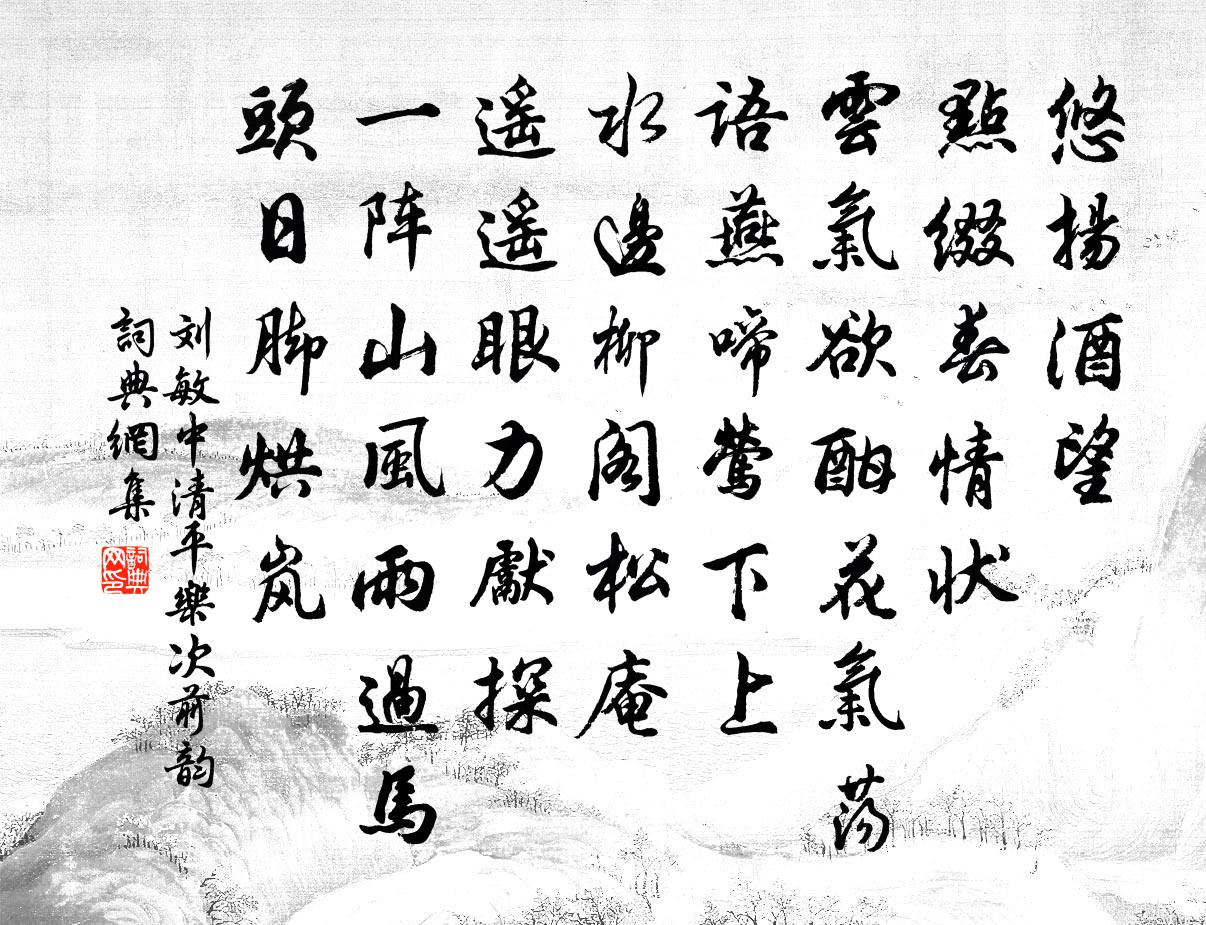 悠揚酒望
點綴春情狀
雲氣欲酣花氣蕩
語燕啼鶯下上
水邊柳閣松庵
遥遥眼力獻探
一阵山風雨過馬
頭日脚烘岚
刘敏中清平樂次前韵
詞典網集
詞典网印